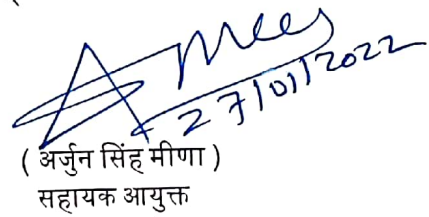 27/01/2022
( अर्जुन सिंह मीणा )
सहायक आयुक्त